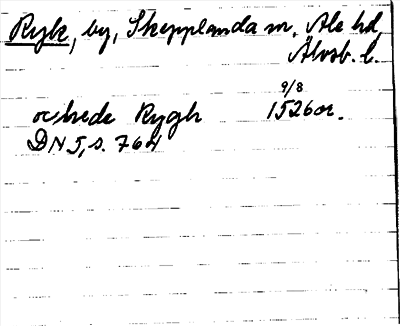 Ryk, by, Skepplanda sn, Ale hd,
Älvsb. l.
9/8
Rygh 1526 or.
DN 5, s. 764